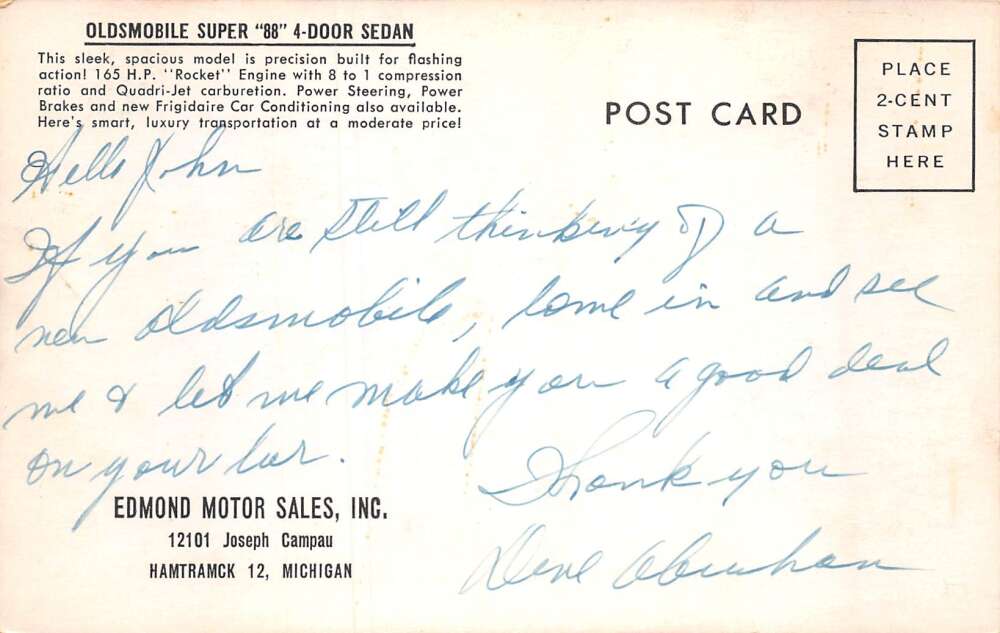 OLDSMOBILE SUPER "88" 4-DOOR SEDAN
This sleek, spacious model is precision built for flashing
action! 165 H.P. "Rocket" Engine with 8 to 1 compression
ratio and Quadri-Jet carburetion. Power Steering, Power
Brakes and new Frigidaire Car Conditioning also available.
Here's smart, luxury transportation at a moderate price!
POST CARD
PLACE
2-CENT
STAMP
HERE
Hello John
If you are still thinking of a
new Oldsmobile, come in and see
me & let me make you a good deal
on your car.
Thank you
EDMOND MOTOR SALES, INC.
12101 Joseph Campau
HAMTRAMCK 12, MICHIGAN